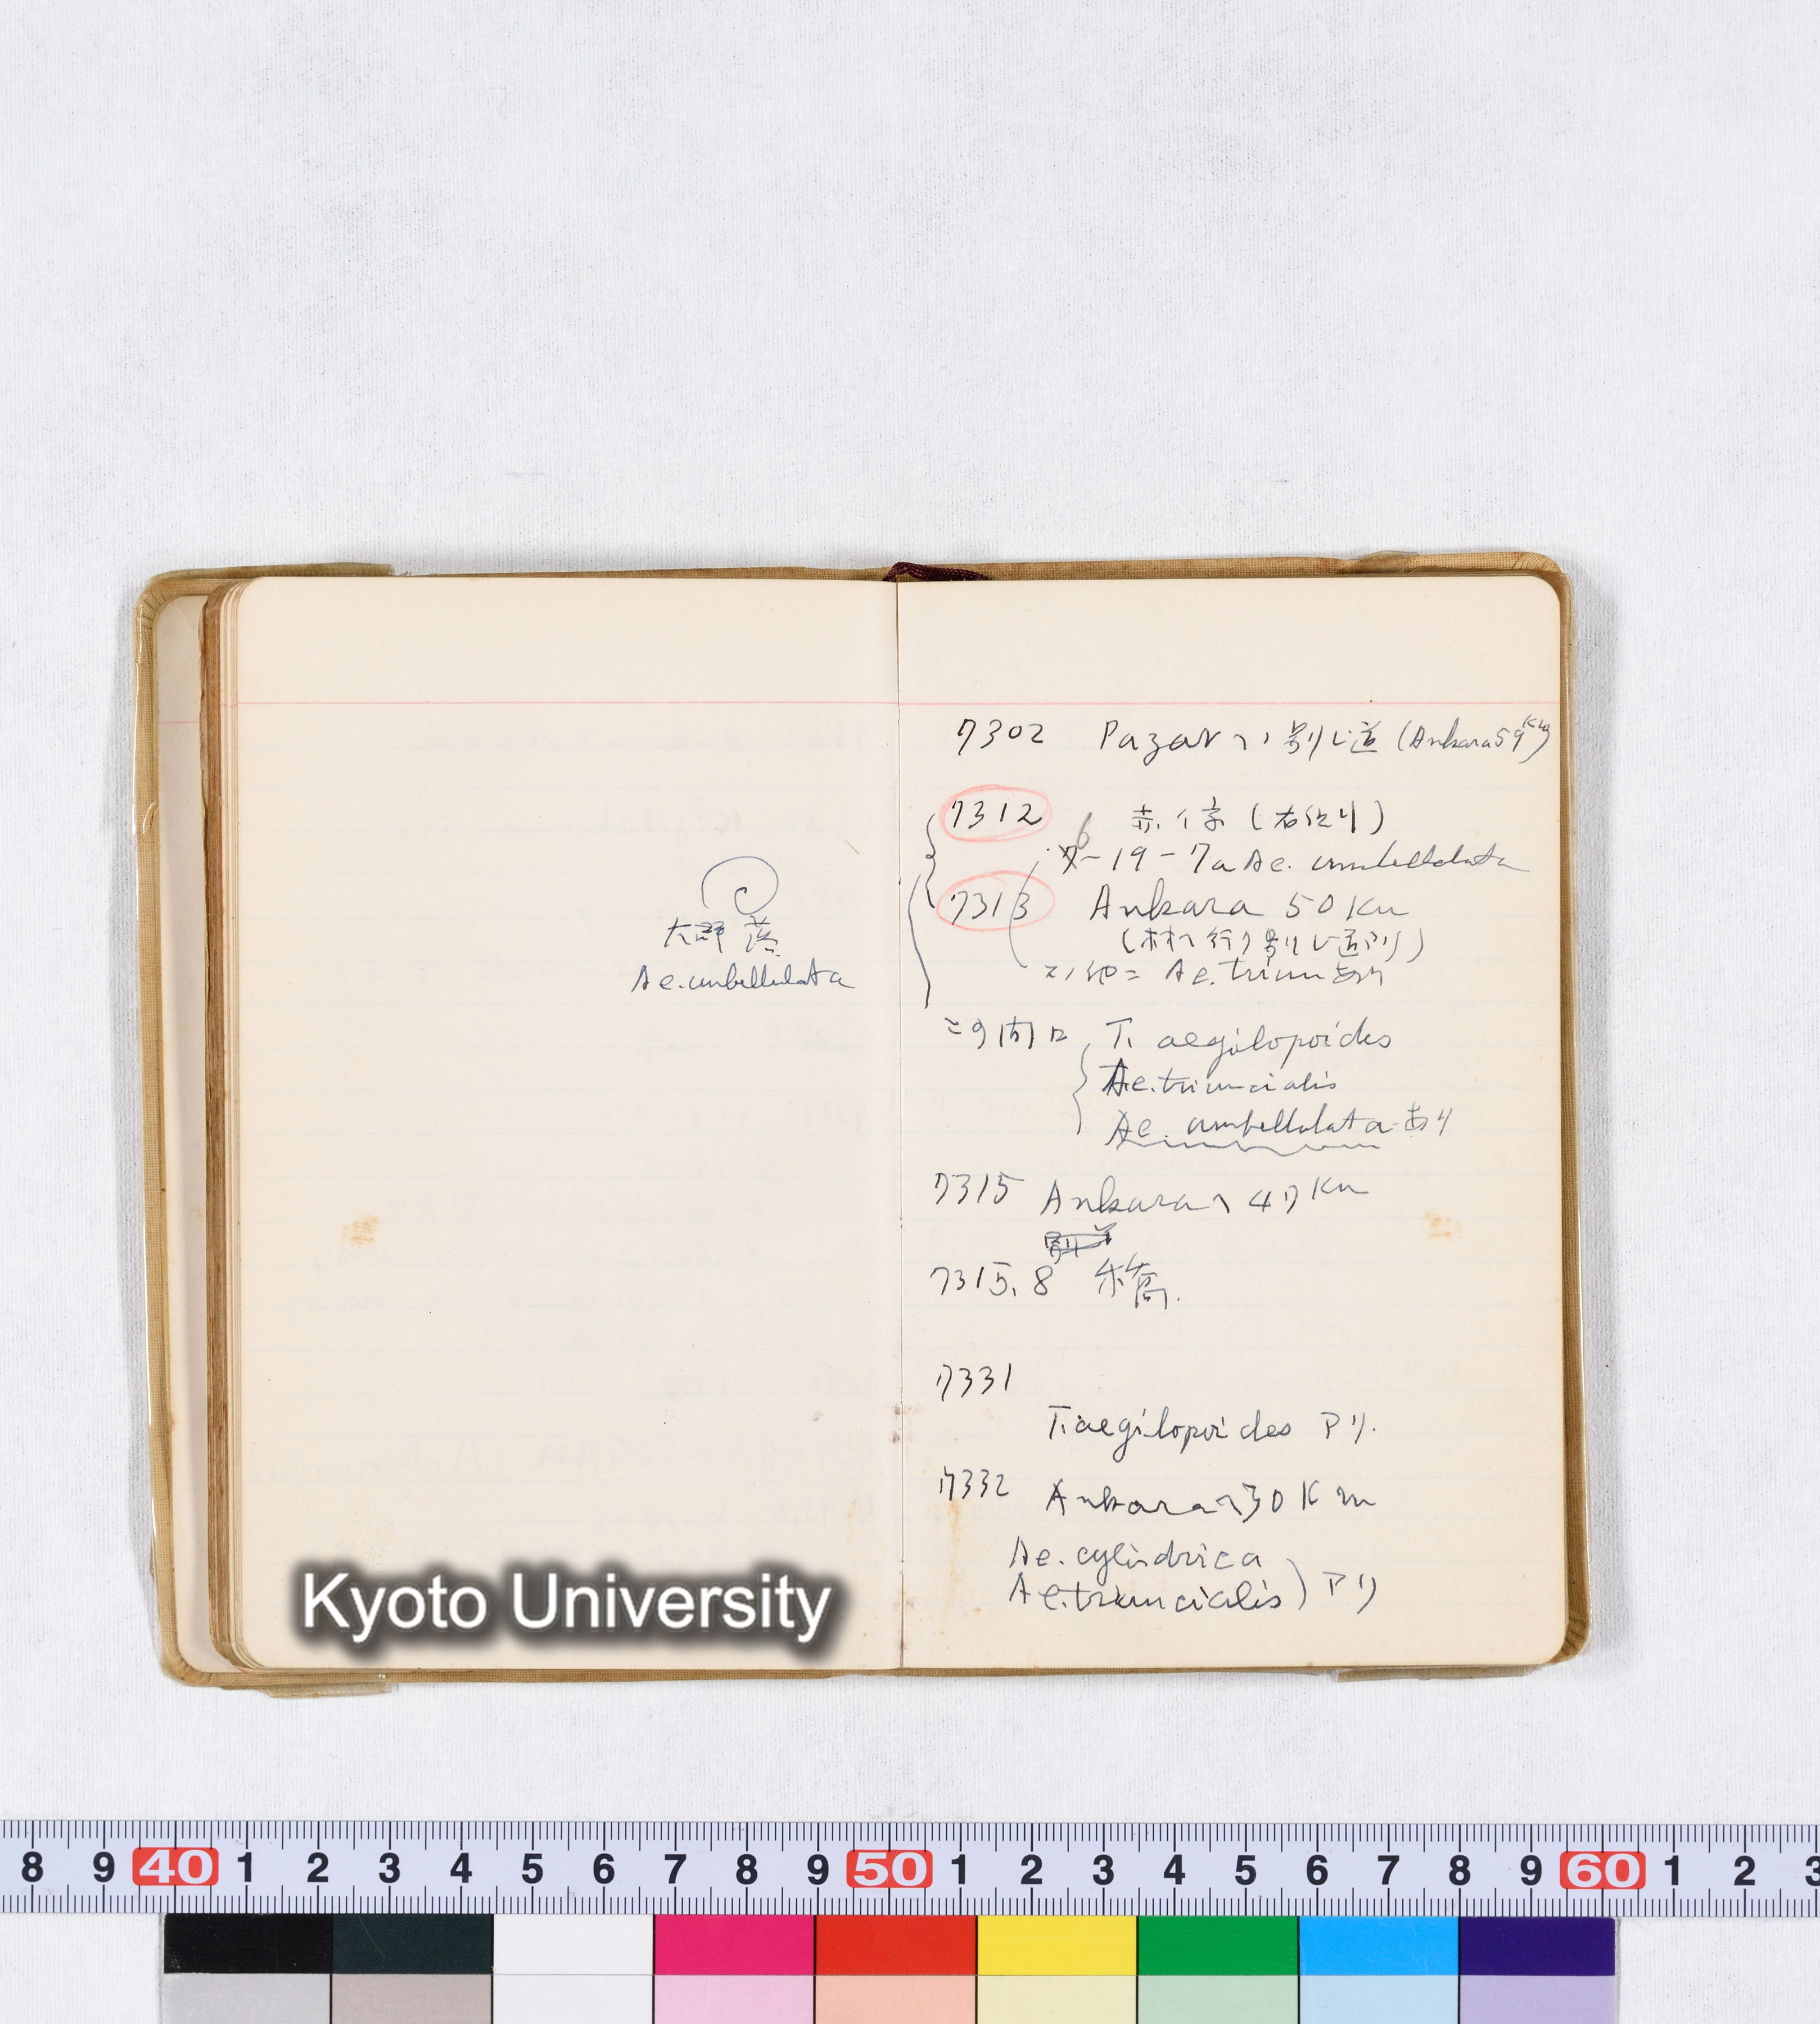 大群落
Ae. umbellulata
7302 Pazarヘノ別レ道 (Ankara 59 Km)
7312
6-19-7a Ae. umbellulata
7313 Ankara 50 Km
(村ヘ行ク別レ道アリ)
コノ地ニ Ae. triun あり
この間ニ T. aegilopoides
Ae. triuncialis
Ae. umbellulata あり
7315 Ankaraヘ 47 Km
7315.8
7331
T. aegilopoides アリ.
7332 Ankaraヘ30 Km
Ae. cylindrica
Ae. triuncialis ) アリ
Kyoto University
8 9 40 1 2 3 4 5 6 7 8 9 50 1 2 3 4 5 6 7 8 9 60 1 2 3